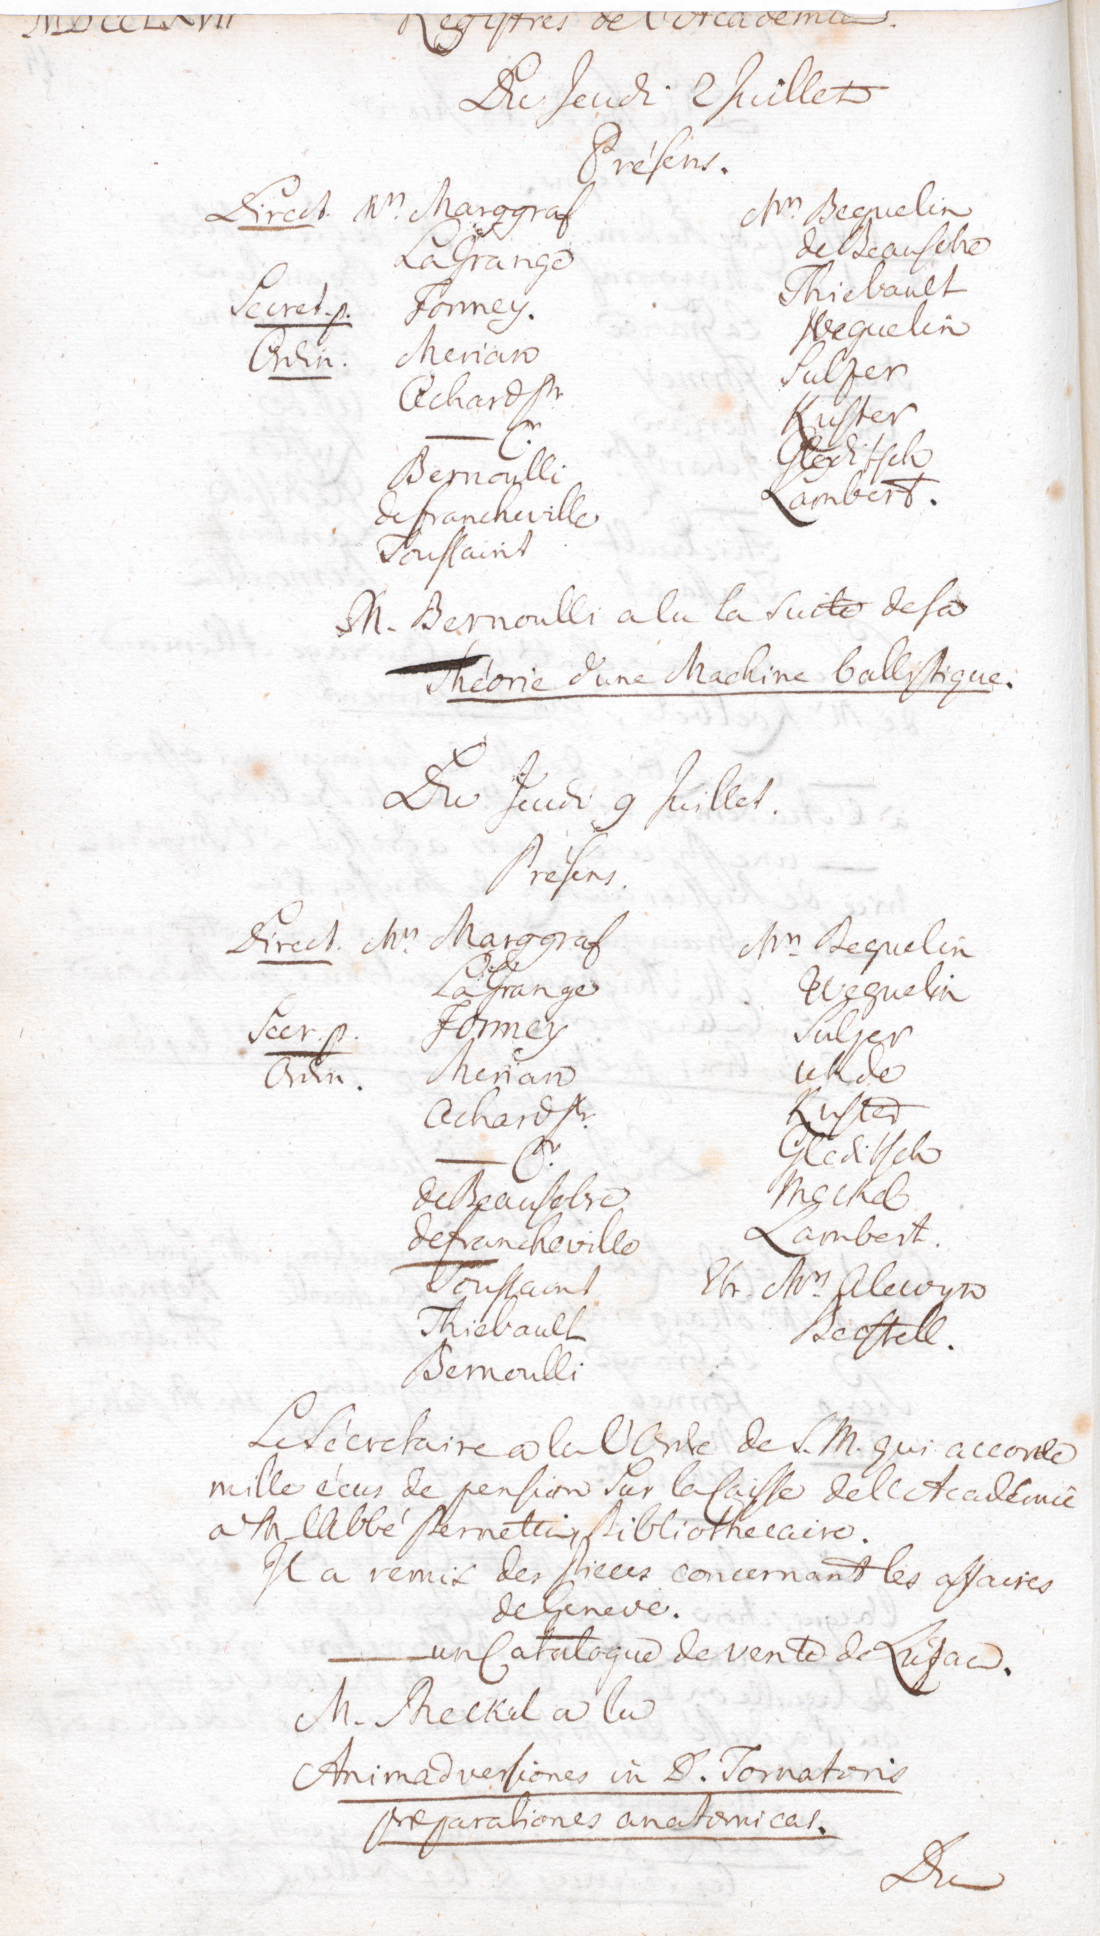 MDCCLXVII Registres de l'Academie.
Du Jeudi 2 Juillet
Présens.
Direct. Mrs Marggraf
de
La Grange
Secret. p. Formey.
Ordin. Merian
Achard Pr.
—— Cr.
Bernoulli
de francheville
Toussaint
Mrs Beguelin
de Beausobre
Thiebault
Weguelin
Sulzer
Kuster
Gleditsch
Lambert.
M. Bernoulli a lu la suite de sa
Théorie d'une Machine ballistique.
Du Jeudi 9 Juillet.
Présens.
Direct. Mrs Marggraf
de
La Grange
Secr. p. Formey
Ordin. Merian
Achard Pr.
—— Cr.
de Beausobre
de francheville
Toussaint
Thiebault
Bernoulli
Mrs Beguelin
Weguelin
Sulzer
Uhde
Kuster
Gleditsch
Meckel
Lambert.
Etr. Mrs Alewyn
Le Secretaire a lu l'Ordre de S. M. qui accorde
mille écus de pension sur la Caisse de l'Académie
a M. l'Abbé Pernetti, Bibliothecaire.
Il a remis des pieces concernant les affaires
de Geneve.
—— un Catalogue de vente de Luzac.
M. Meckel a lu
Animadversiones in D. Tornatoris
præparationes anatomicas.
Du